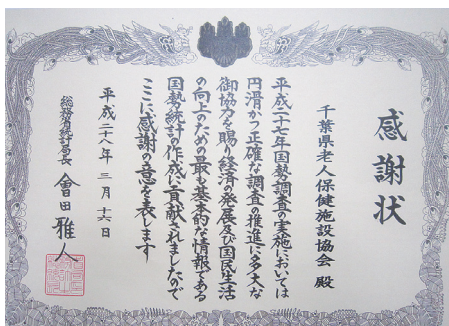 感謝状
千葉県老人保健施設協会 殿
平成二十七年国勢調査の実施においては
円滑かつ正確な調査の推進に多大な
御協力を賜り経済の発展及び国民生活
の向上のための最も基本的な情報である
国勢統計の作成に貢献されましたので
ここに感謝の意を表します
平成二十八年 三月 十六日
総務省統計局長 會田雅人